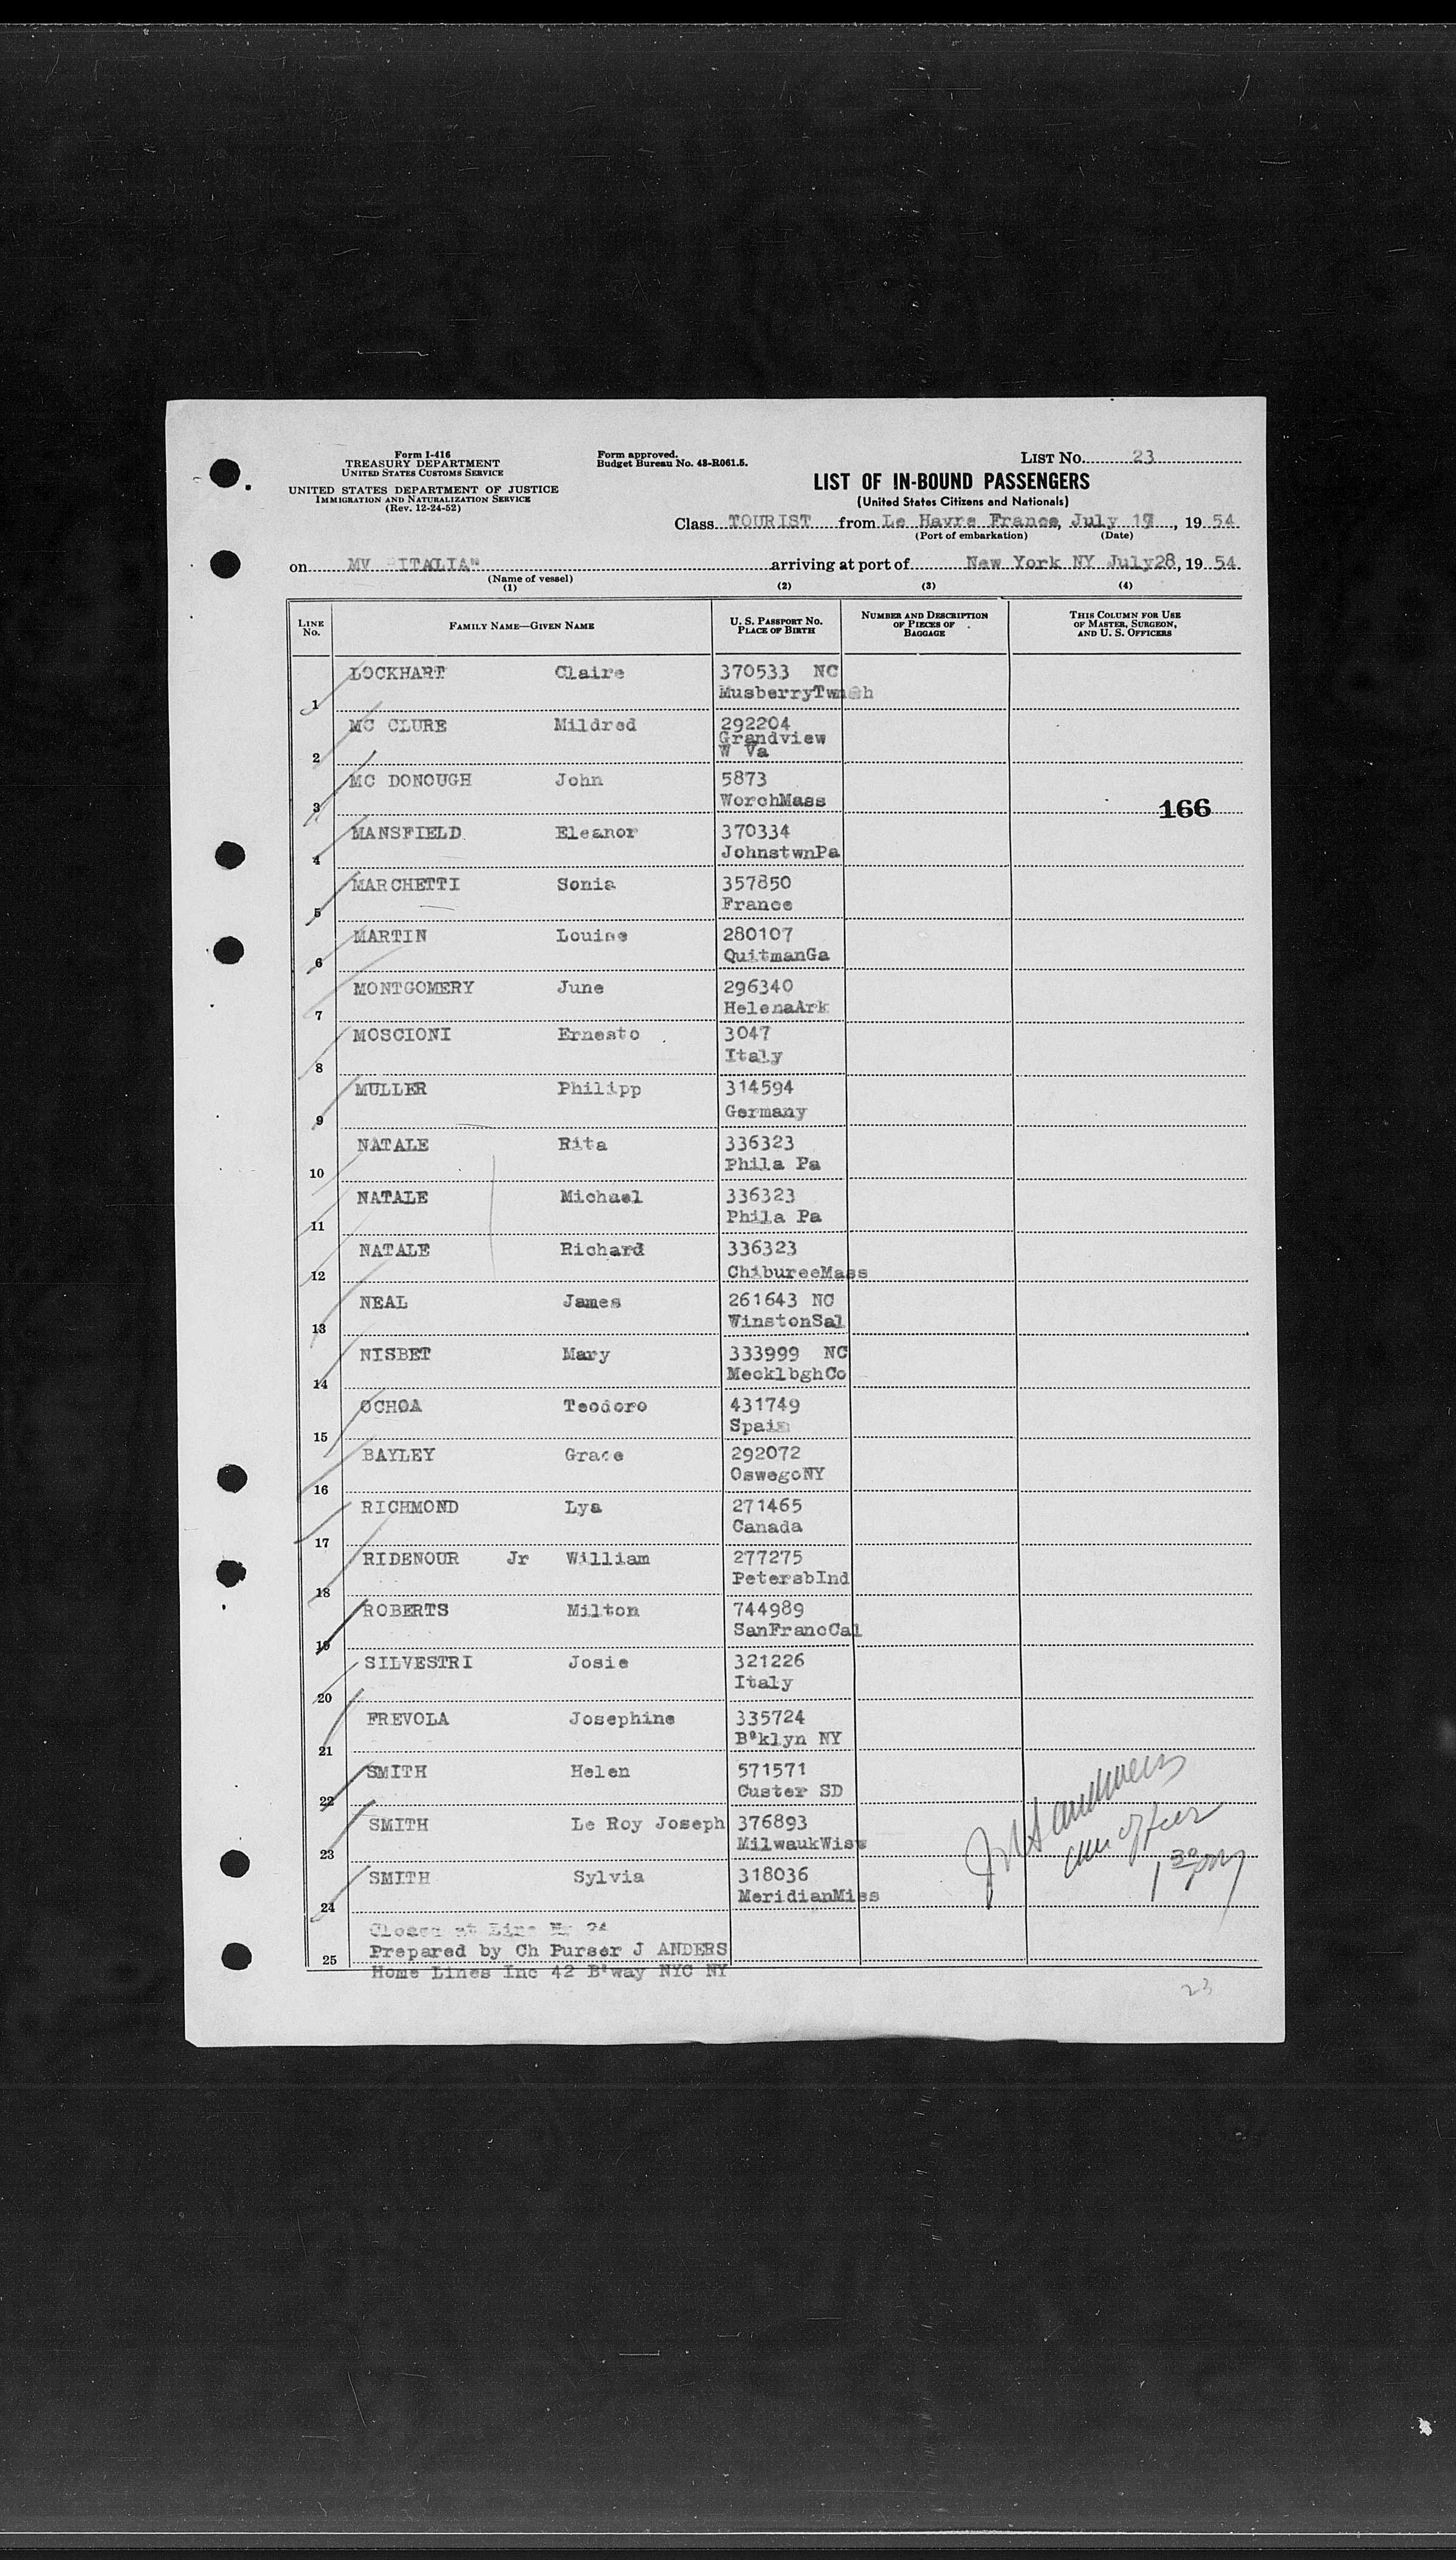 Form I-416
TREASURY DEPARTMENT
UNITED STATES CUSTOMS SERVICE
UNITED STATES DEPARTMENT OF JUSTICE
IMMIGRATION AND NATURALIZATION SERVICE
(Rev. 12-24-52)
Form approved.
Budget Bureau No. 43-R061.5.
LIST NO. 23
LIST OF IN-BOUND PASSENGERS
(United States Citizens and Nationals)
Class TOURIST from Le Havre France, July 17, 19 54
(Port of embarkation) (Date)
on MV "ITALIA" arriving at port of New York NY July28, 19 54
(Name of vessel)
(1) (2) (3) (4)
LINE No. FAMILY NAME—GIVEN NAME U. S. PASSPORT NO. PLACE OF BIRTH NUMBER AND DESCRIPTION OF PIECES OF BAGGAGE THIS COLUMN FOR USE OF MASTER, SURGEON, AND U. S. OFFICERS
LOCKHART Claire 370533 NC
1 MusberryTwnsh
MC CLURE Mildred 292204
Grandview
2 W Va
MC DONOUGH John 5873
3 WorchMass 166
MANSFIELD Eleanor 370334
4 JohnstwnPa
MARCHETTI Sonia 357850
5 France
MARTIN Louise 280107
6 QuitmanGa
MONTGOMERY June 296340
7 HelenaArk
MOSCIONI Ernesto 3047
8 Italy
MULLER Philipp 314594
9 Germany
NATALE Rita 336323
10 Phila Pa
NATALE Michael 336323
11 Phila Pa
NATALE Richard 336323
12 ChibureeMass
NEAL James 261643 NC
13 WinstonSal
NISBET Mary 333999 NC
14 MecklbghCo
OCHOA Teodoro 431749
15 Spain
BAYLEY Grace 292072
16 OswegoNY
RICHMOND Lya 271465
17 Canada
RIDENOUR Jr William 277275
18 PetersbInd
ROBERTS Milton 744989
19 SanFrancCal
SILVESTRI Josie 321226
20 Italy
FREVOLA Josephine 335724
21 B'klyn NY
SMITH Helen 571571
22 Custer SD
SMITH Le Roy Joseph 376893
23 MilwaukWis
SMITH Sylvia 318036
24 MeridianMiss
Closed at Line No 24
25 Prepared by Ch Purser J ANDERS
Home Lines Inc 42 B'way NYC NY
23